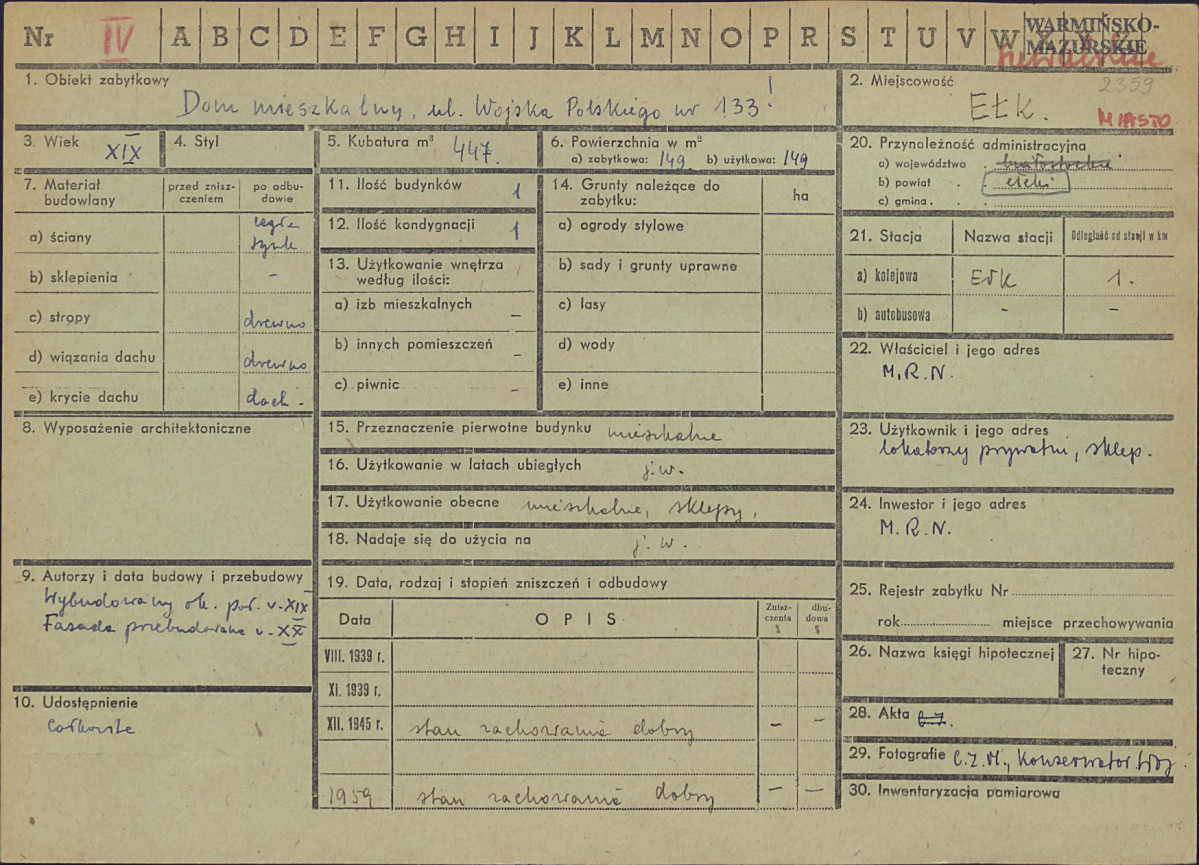 Nr IV A B C D E F G H I J K L M N O P R S T U V W
WARMIŃSKO-
MAZURSKIE
1. Obiekt zabytkowy
Dom mieszkalny, ul. Wojska Polskiego nr 133!
2. Miejscowość
2359
EŁK.
MIASTO
3. Wiek XIX
4. Styl
5. Kubatura m³ 447.
6. Powierzchnia w m²
a) zabytkowa: 149 b) użytkowa: 149
7. Materiał budowlany
przed znisz-
czeniem
po odbu-
dowie
a) ściany cegła tynk
b) sklepienia –
c) stropy drewno
d) wiązania dachu drewno
e) krycie dachu dach.
8. Wyposażenie architektoniczne
9. Autorzy i data budowy i przebudowy
Wybudowany ok. poł. w. XIX
Fasada przebudowana w. XX
10. Udostępnienie
Całkowite
11. Ilość budynków 1
12. Ilość kondygnacji 1
13. Użytkowanie wnętrza
według ilości:
a) izb mieszkalnych –
b) innych pomieszczeń –
c) piwnic –
14. Grunty należące do
zabytku:
ha
a) ogrody stylowe
b) sady i grunty uprawne
c) lasy
d) wody
e) inne
15. Przeznaczenie pierwotne budynku mieszkalne
16. Użytkowanie w latach ubiegłych j.w.
17. Użytkowanie obecne mieszkalne, sklepy,
18. Nadaje się do użycia na j.w.
19. Data, rodzaj i stopień zniszczeń i odbudowy
Data OPIS
Znisz-
czenia
%
dbu-
dowa
%
VIII. 1939 r.
XI. 1939 r.
XII. 1945 r. stan zachowania dobry – –
1959 stan zachowania dobry – –
20. Przynależność administracyjna
a) województwo . białostockie
b) powiat . . ełcki
c) gmina .
21. Stacja Nazwa stacji Odległość od stacji w km
a) kolejowa Ełk 1.
b) autobusowa – –
22. Właściciel i jego adres
M.R.N.
23. Użytkownik i jego adres
lokatorzy prywatni, sklep.
24. Inwestor i jego adres
M.R.N.
25. Rejestr zabytku Nr
rok miejsce przechowywania
26. Nazwa księgi hipotecznej
27. Nr hipo-
teczny
28. Akta
29. Fotografie C.I.M., Konserwator Woj
30. Inwentaryzacja pomiarowa